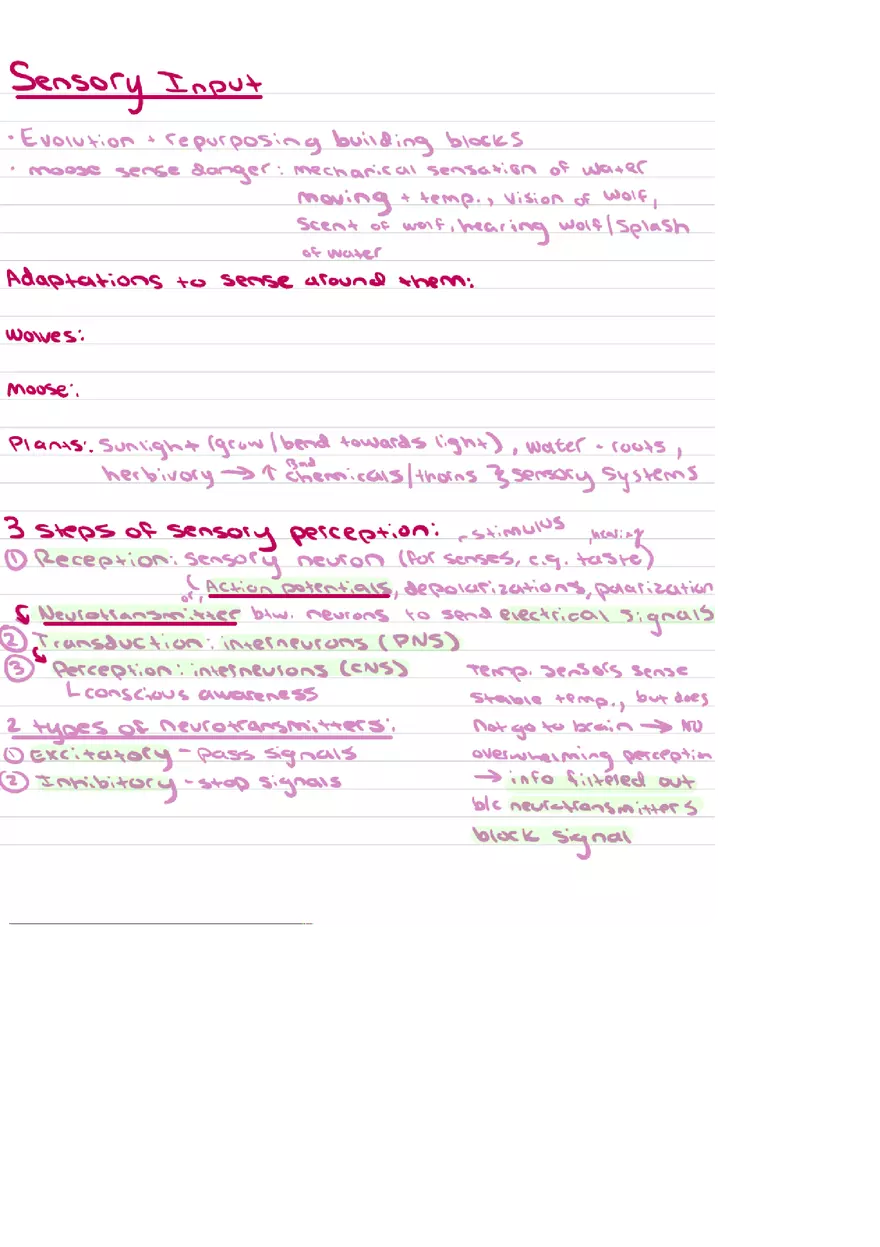 Sensory Input
• Evolution + repurposing building blocks
• moose sense danger: mechanical sensation of water
moving + temp., vision of wolf,
scent of wolf, hearing wolf/splash
of water
Adaptations to sense around them:
Wolves:
Moose:
Plants: Sunlight (grow/bend towards light), water - roots,
herbivory → ↑ 2nd chemicals/thorns } sensory systems
3 steps of sensory perception:
stimulus
, hearing
① Reception: sensory neuron (for senses, e.g. taste)
Action potentials, depolarizations, polarization
Neurotransmitter btw. neurons to send electrical signals
② Transduction: interneurons (PNS)
③ Perception: interneurons (CNS)
conscious awareness
2 types of neurotransmitters:
① Excitatory - pass signals
② Inhibitory - stop signals
Temp. sensors sense
stable temp., but does
not go to brain → NO
overwhelming perception
→ info filtered out
b/c neurotransmitters
block signal